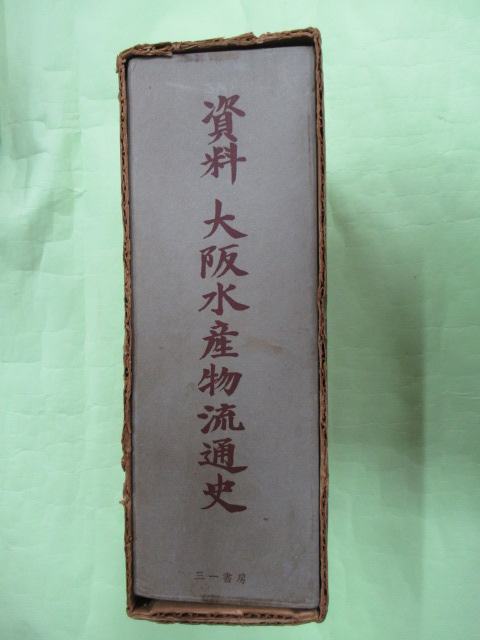 資料 大阪水産物流通史
三一書房